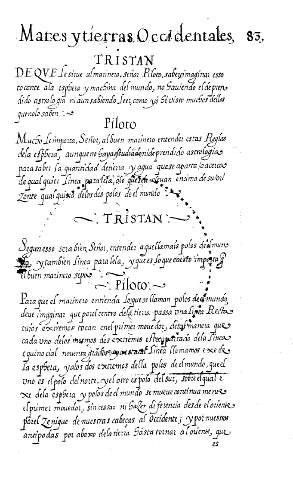 Mares y tierras Occidentales, 83.
TRISTAN
DE QVE le sirue al marinero, señor Piloto, saber ymaginar esto
tocante a la esphera y machina del mundo, no hauiendo el depren-
dido astrologia ni aun sabiendo leer, como yo he visto muchos dellos
que no lo saben.
Piloto
Mucho le importa, Señor, al buen marinero entender estas Reglas
de la esphera, aunque no haya deprendido astrologia
para saber la quantidad de tierra y agua que se aparta o acerca
de qualquier linea paralela, que esté encima de su ori
zonte qualquiera de los dos polos del mundo.
TRISTAN
Segun esso sera bien, Señor, entender a que llamais polos del mundo
y tambien linea paralela, y que es lo que en esto importa
el buen marinero
Piloto
Para que el marinero entienda lo que se llaman polos del mundo,
deue imaginar que por el centro de la tierra passa una linea Recta
cuyos extremos tocan en el primer mouedor, de tal manera que
cada uno de los mismos dos extremos este apartado de la linea
equinocial nouenta grados, y a esta linea llamamos exe de
la esphera, y a los dos extremos della polos del mundo, que el
uno es el polo del norte, y el otro es polo del sur, sobre el qual e
xe de la esphera y polos del mundo se mueue continuamente
el primer mouedor, sin cessar ni hazer diferencia desde el oriente
por el Zenique de nuestras cabeças al Occidente; y por nuestros
antipodas por abaxo de la tierra hasta tornar al oriente, que
es